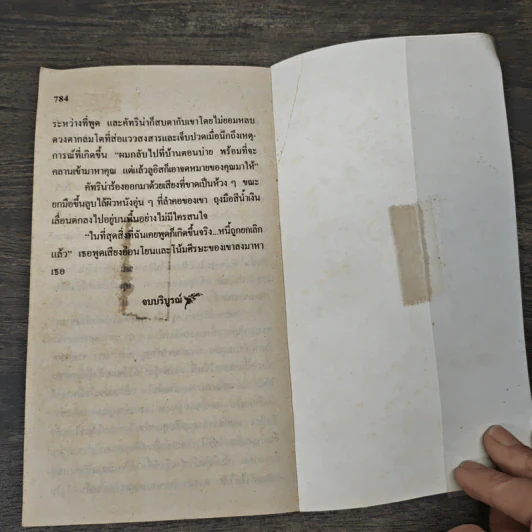 784
ระหว่างที่พูด และคัทรินาก็สบตากับเขาโดยไม่ยอมหลบ
ดวงตากลมโตที่ส่อแววสงสารและเจ็บปวดเมื่อนึกถึงเหตุ-
การณ์ที่เกิดขึ้น "ผมกลับไปที่บ้านตอนบ่าย พร้อมที่จะ
คลานเข้ามาหาคุณ แต่แล้วลูอิสก็เอาจดหมายของคุณมาให้"
คัทรินาร้องออกมาด้วยเสียงที่ขาดเป็นห้วง ๆ ขณะ
ยกมือขึ้นลูบไล้ผิวหนังอุ่น ๆ ที่ลำคอของเขา ถุงมือสีน้ำเงิน
เลื่อนตกลงไปอยู่บนพื้นอย่างไม่มีใครสนใจ
"ในที่สุดสิ่งที่ฉันเคยพูดก็เกิดขึ้นจริง...หนี้ถูกยกเลิก
แล้ว" เธอพูดเสียงอ่อนโยนและโน้มศีรษะของเขาลงมาหา
เธอ
จบบริบูรณ์